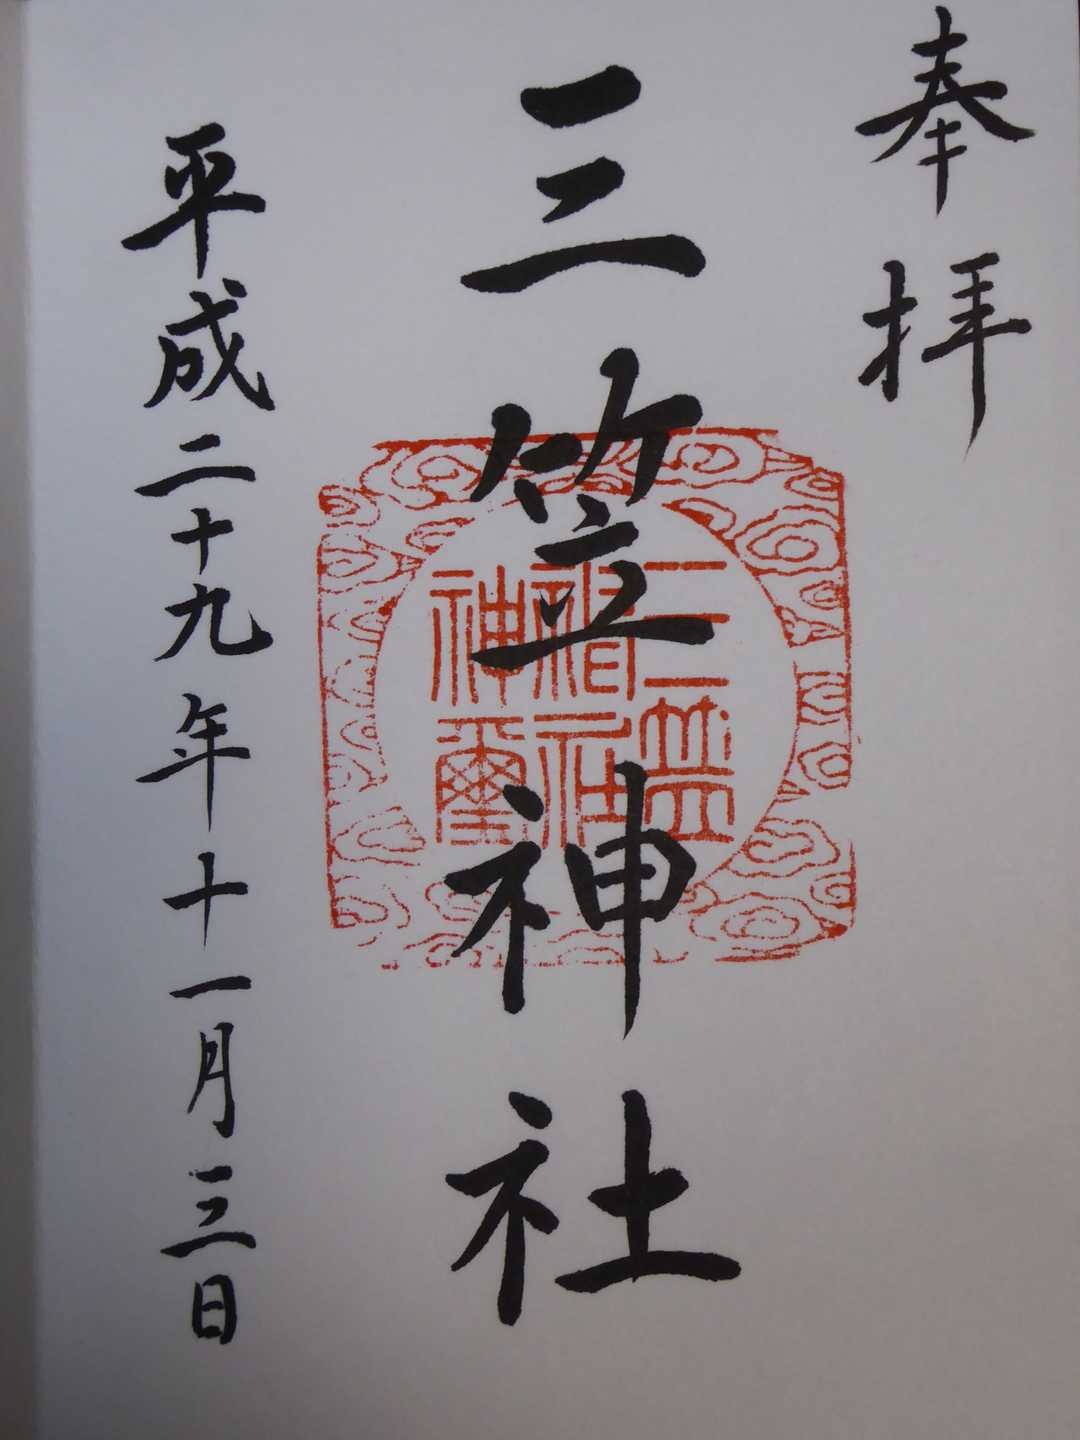 奉拝
三笠神社
三笠神社神璽
平成二十九年十一月三日